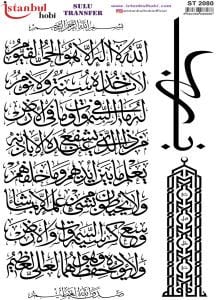 istanbul hobi
SULU TRANSFER
www.istanbulhobi.com
ST 2080
بسم الله الرحمن الرحيم
الله لا اله الا هو الحي القيوم
لا تأخذه سنة ولا نوم
له ما في السموات وما في الارض
من ذا الذي يشفع عنده الا باذنه
يعلم ما بين ايديهم وما خلفهم
ولا يحيطون بشيء من علمه الا بما شاء
وسع كرسيه السموات والارض
ولا يؤده حفظهما وهو العلي العظيم
صدق الله العظيم